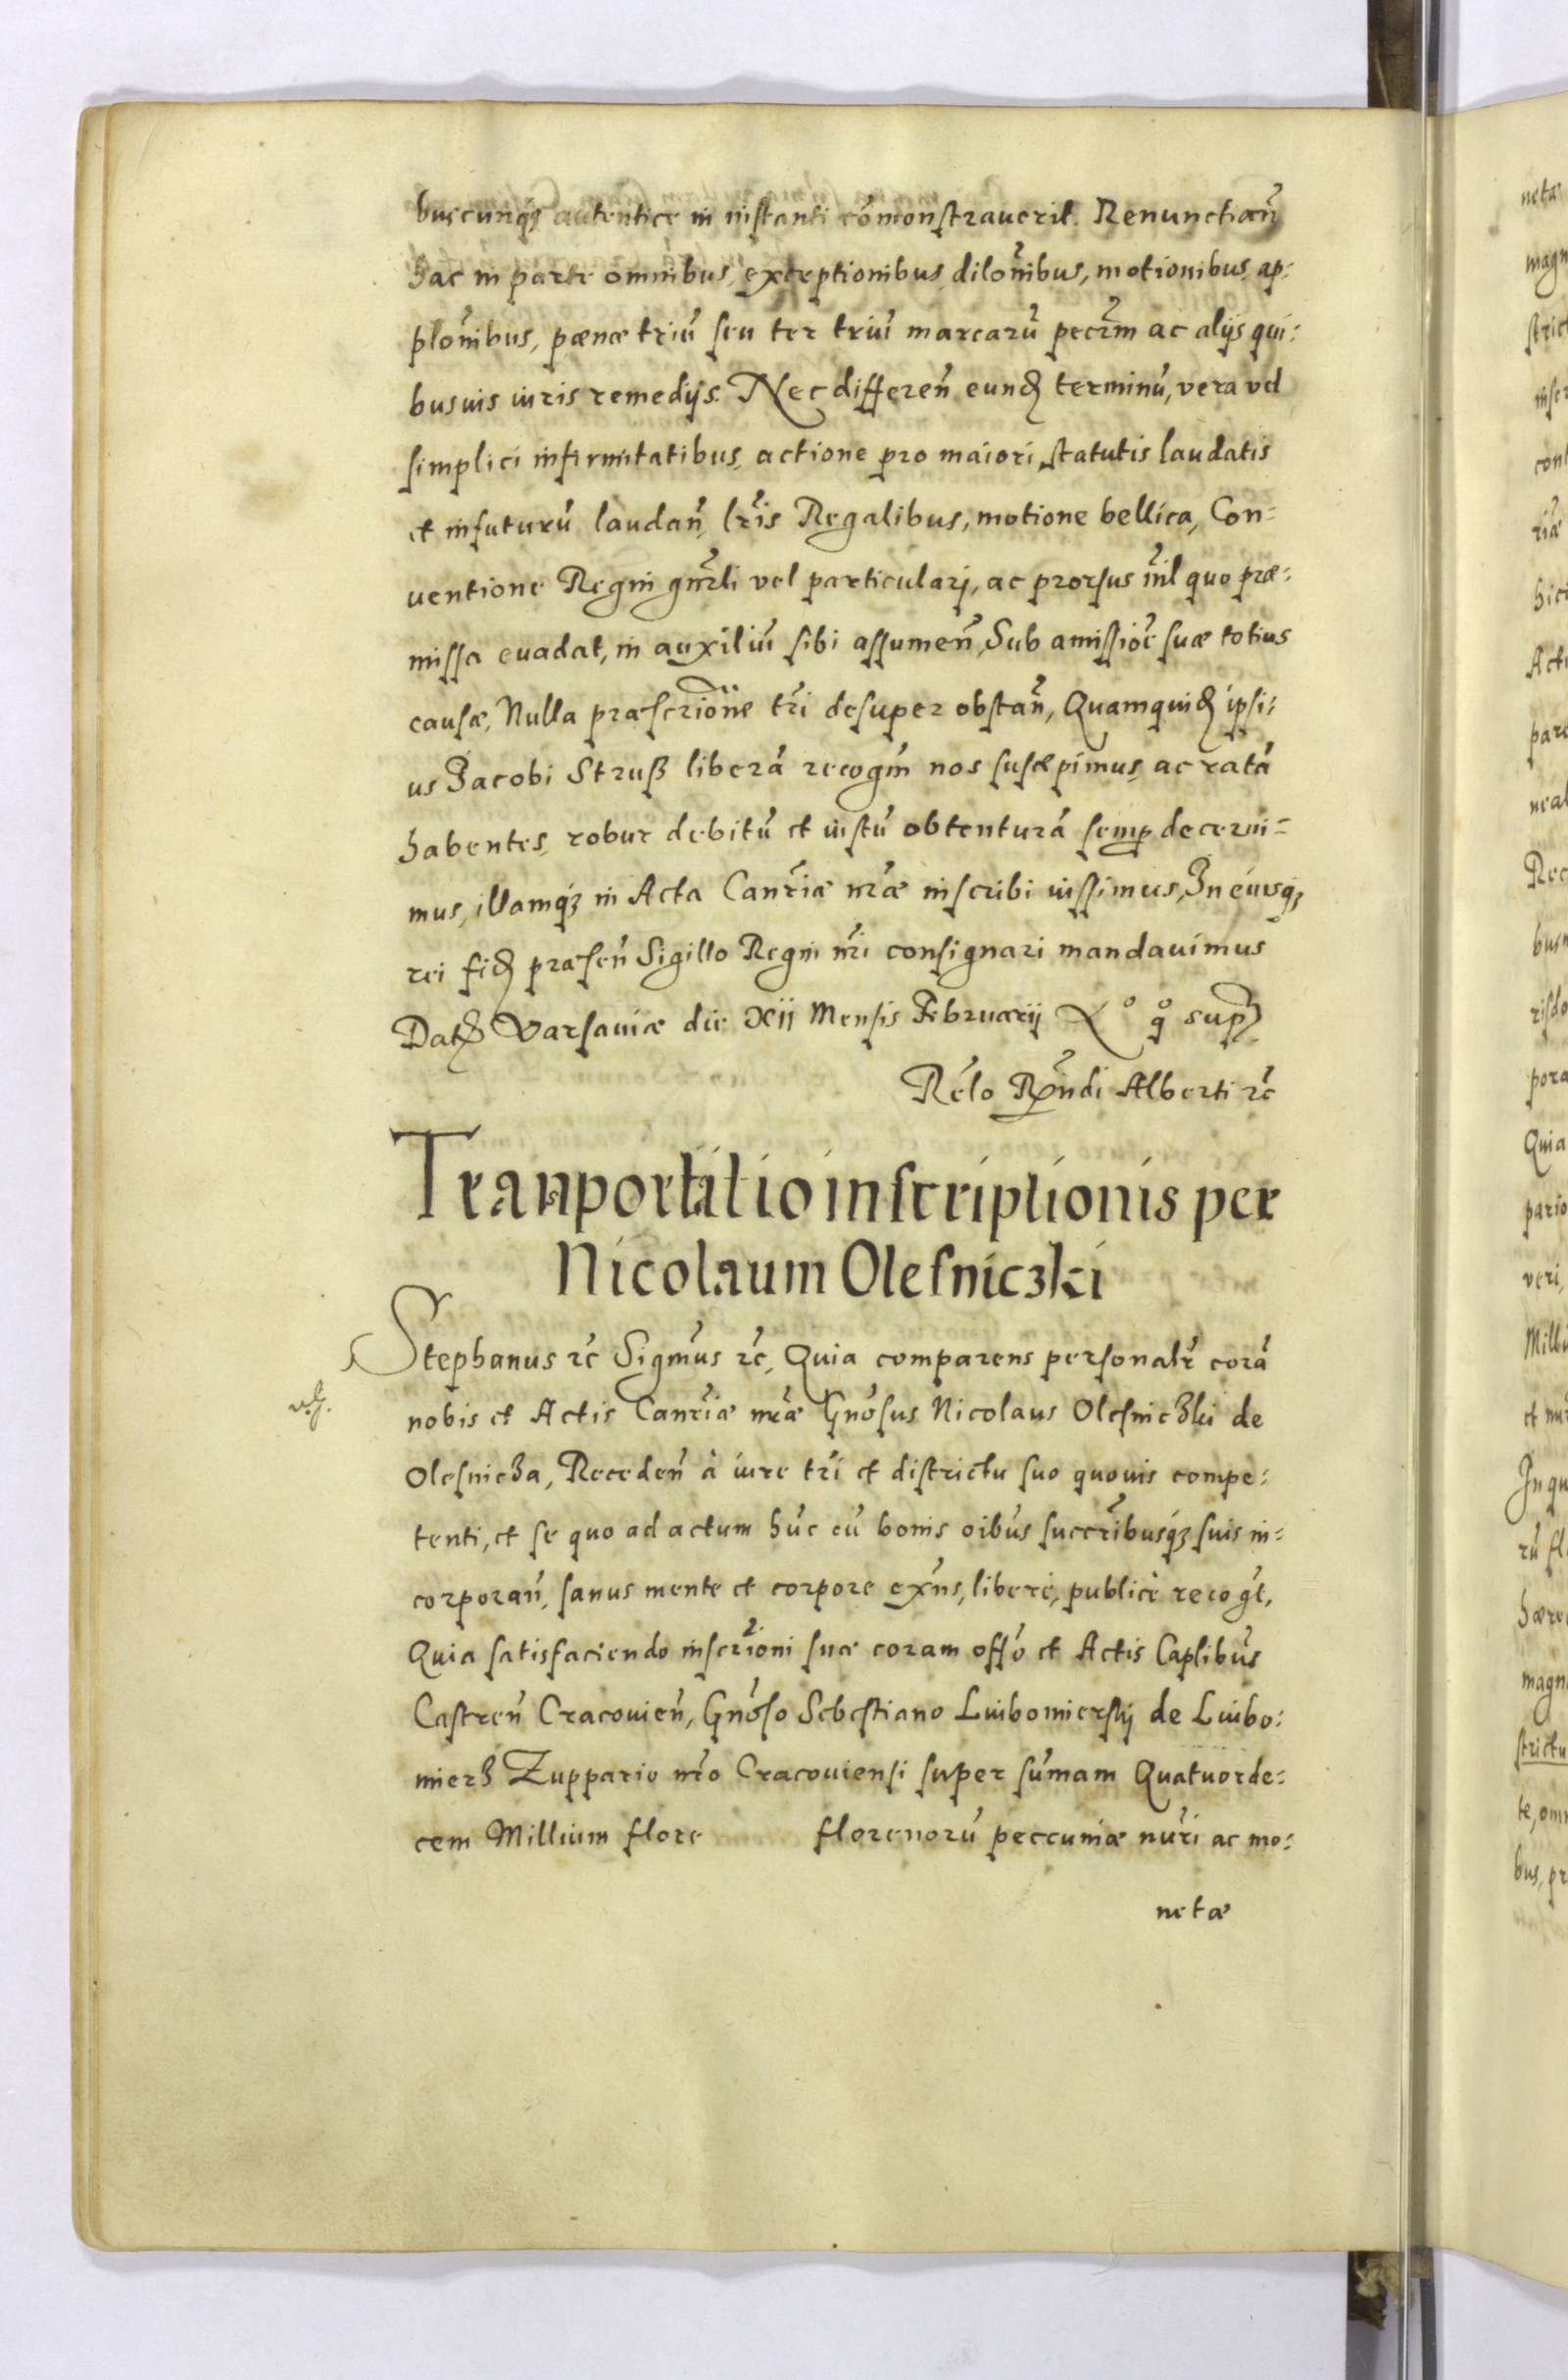 buscunq́ꝫ autentice in instanti cõmonstraverit. Renunctiañ
hac in parte omnibus, exceptionibus, diloñibus, motionibus, ap:
ploñibus, pænæ triũ seu ter triũ marcarũ pecr̃m ac alijs qui:
busuis iuris remedijs. Nec differeñ eund̃ terminũ, vera vel
simplici infirmitatibus, actione pro maiori, statutis laudatis
et in futurũ laudañ, lr̃is Regalibus, motione bellica, Con=
uentione Regni gnr̃li vel particularj, ac prorsus nil quo præ:
missa euadat, in auxiliũ sibi assumeñ, Sub amissioẽ suæ totius
causæ, Nulla præscrïone tr̃i desuper obstañ, Quamquid̃ ipsi:
us Jacobi Struß liberã recogm̃ nos suscepimus, ac ratã
habentes, robur debitũ et iustũ obtenturã semp̱ decerni=
mus, illamq́ꝫ in Acta Canr̃iæ nr̃æ inscribi iussimus, In cuiusq́ꝫ
rei fid̃ præseñ Sigillo Regni nr̃i consignari mandauimus
Datꝭ Varsauiæ die Xii Mensis Februarij Lº qº supꝭ
Rẽlo Rñdi Alberti rc̃
Tranportatio inscriptionis per
Nicolaum Olesniczki
Stephanus rc̃ Sigmũs rc̃, Quia comparens personalr̃ corã
nobis et Actis Canr̃iæ nr̃æ Gnõsus Nicolaus Olesniczki de
Olesnicza, Recedeñ à iure tr̃i et districtu suo quouis compe:
tenti, et se quo ad actum hũc cũ bonis oibũs succr̃ibusq́ꝫ suis in=
corporañ, sanus mente et corpore exñs, liberè, publicè recogt̃,
Quia satisfaciendo inscrĩoni suæ coram offõ et Actis Caplibũs
Castreñ Cracouieñ, Gnõso Sebestiano Luibomierskj de Luibo:
mierz Zuppario nr̃o Cracouiensi super sũmam Quatuorde:
cem Millium flore florenorũ peccuniæ nur̃i ac mo:
netæ